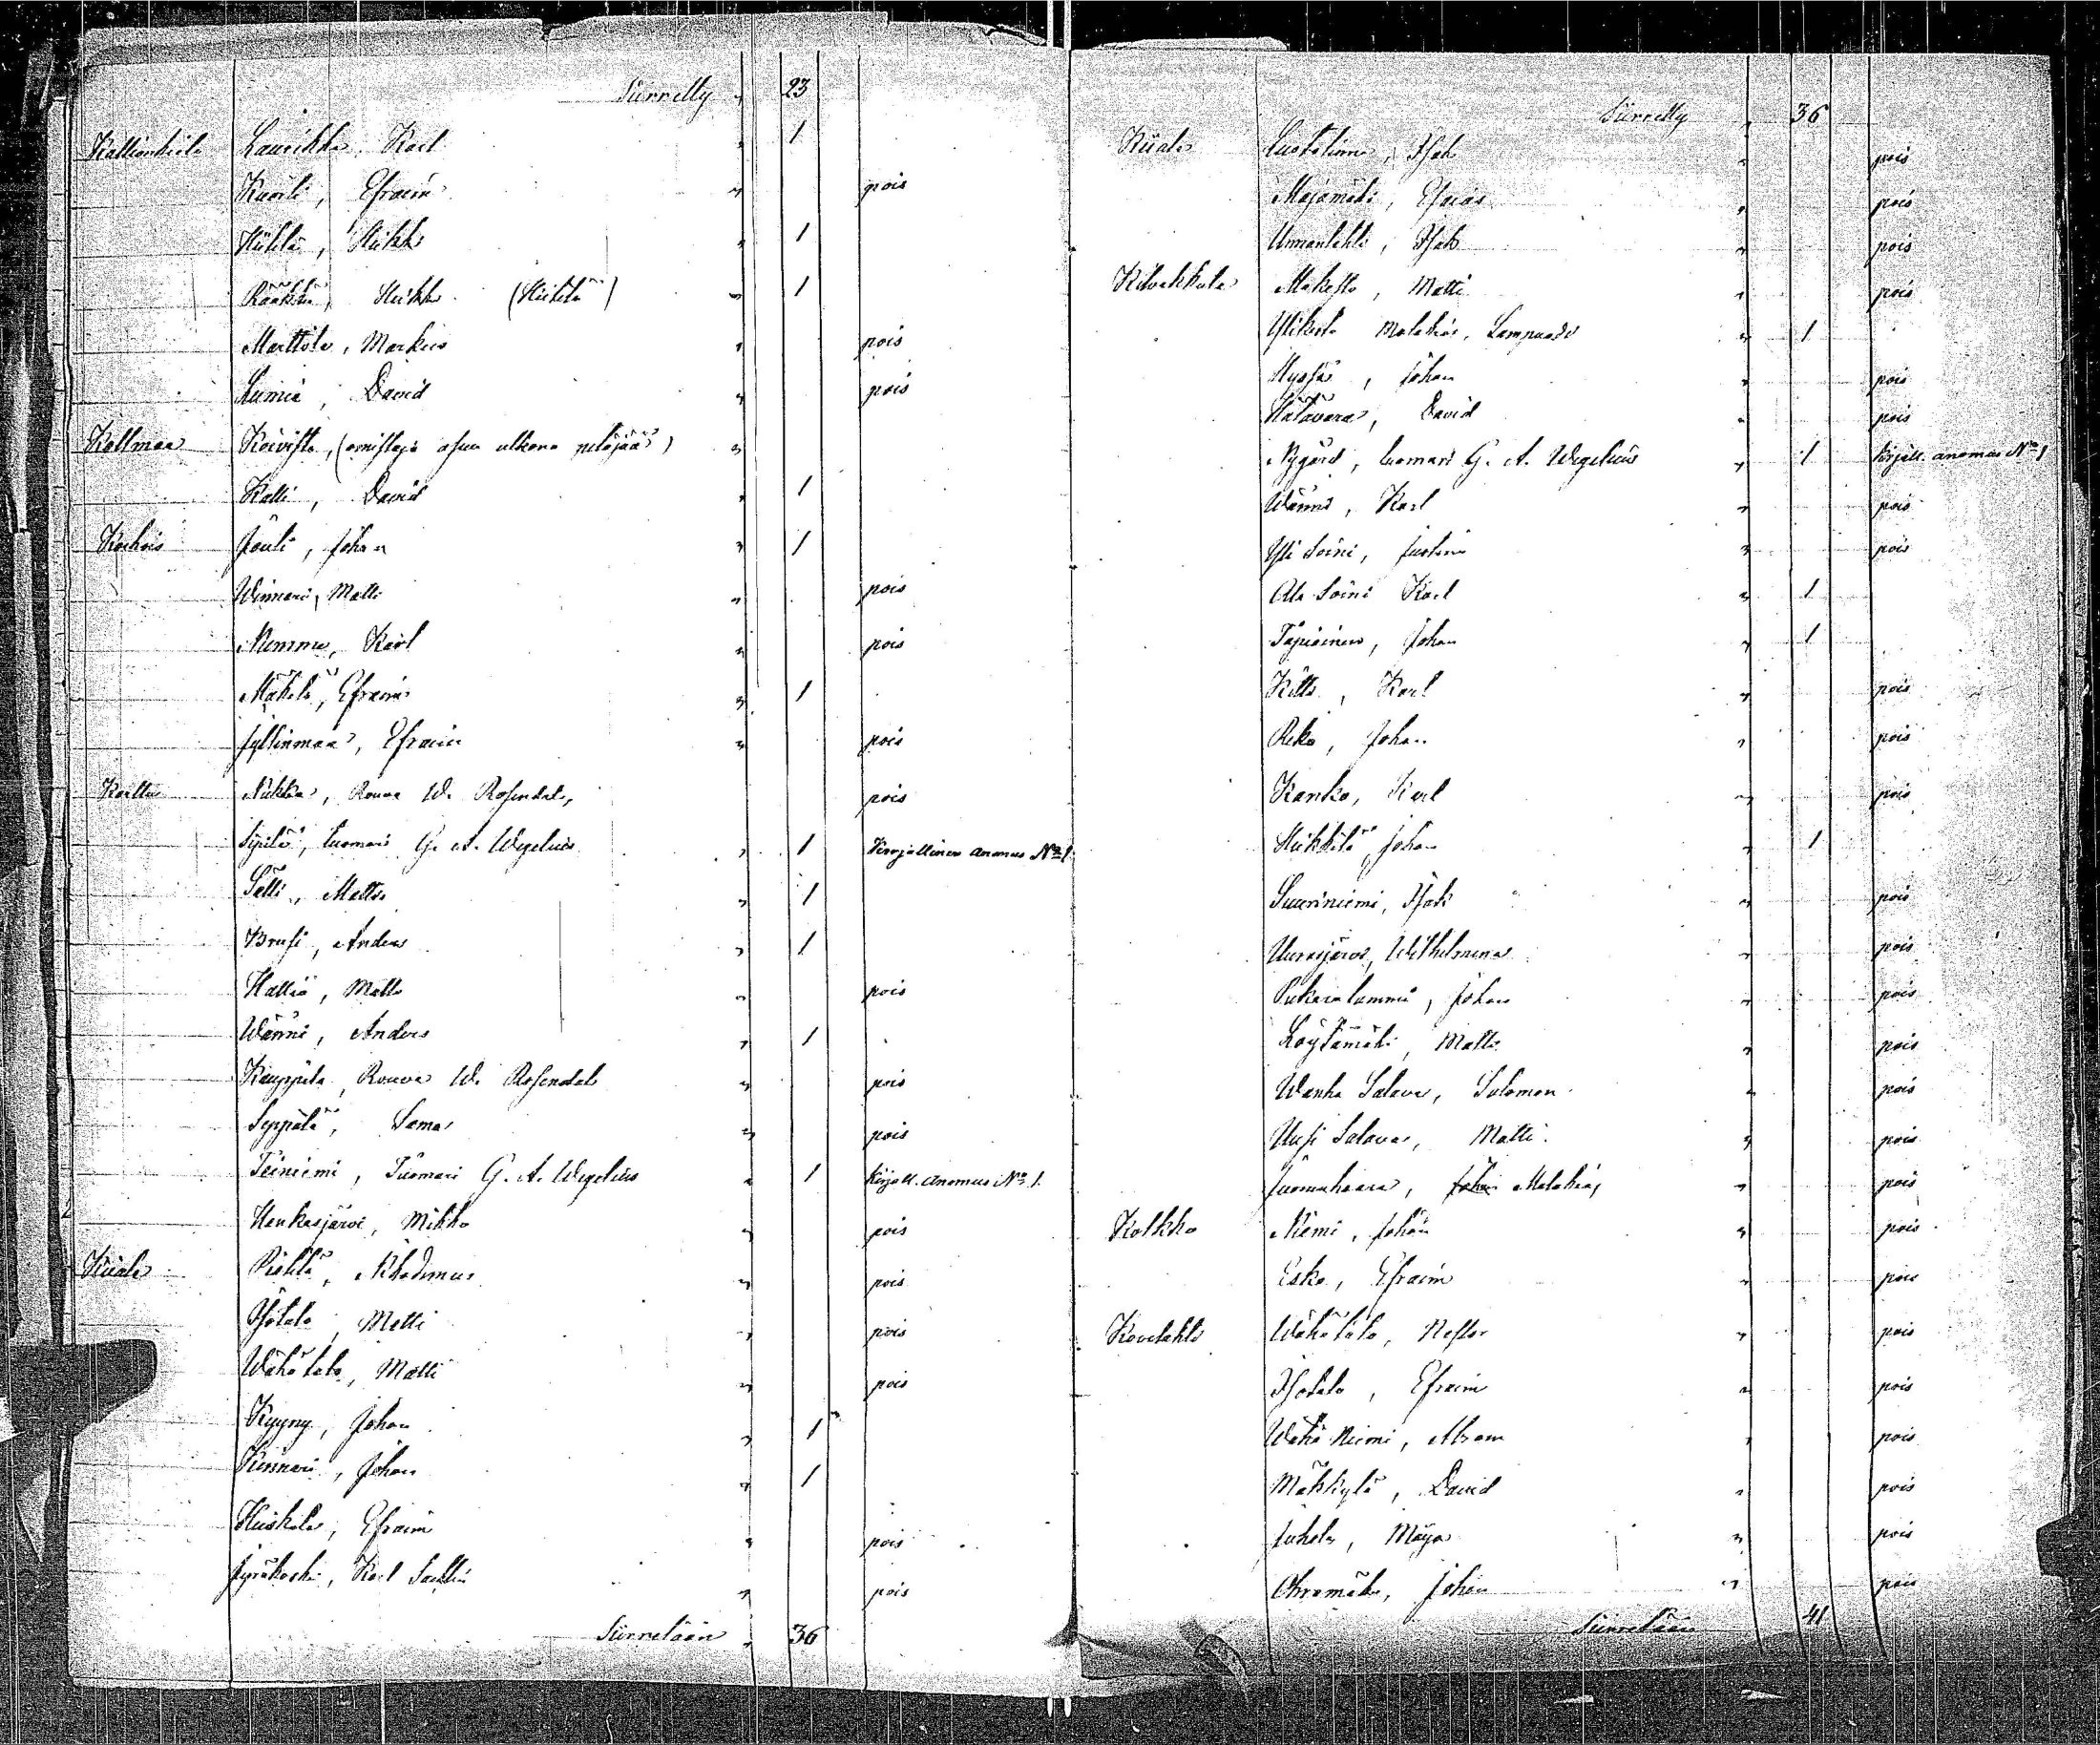 Siirretty „ 23
Laurikka Karl „ 1
Kuorli, Efraim „ pois
Hiihtä, Heikki „ 1
Rääkki, Heikki (Hiihtä) „ 1
Marttila, Markus „ pois
David „ pois
Kallmaa Koivisto, (omistaja asuu ulkona pitäjää) „
Kalli, David „ 1
Jouli, Johan „ 1
Winnari, Matti „ pois
Nummu, Karl „ pois
Mäkelä, Efraim „ 1
Jyllinmaa, Efraim „ pois
Karttu Rouva W. Rosendal, pois
Sipilä, tuomari G. A. Wegelius „ 1 Kirjallinen anomus No 1.
Sälli, Matts „ 1
Brusi, Anders „ 1
Hallia, Matts „ pois
Wänni, Anders „ 1
Kauppila, Rouva W. Rosendal „ pois
Seppälä, Sama „ pois
Teiniemi, Tuomari G. A. Wegelius „ 1 Kirjall. anomus No 1.
Honkasjärvi, Mikko „ pois
Kiiala Pietilä, Nikodemus „ pois
Isotalo, Matti „ pois
Wähätalo, Matti „ pois
Kyyny, Johan „ 1
Kinnari, Johan „ 1
Hiiskala, Efraim „ pois
Jyräkoski, Karl „ pois
Siirretään „ 36
Siirretty „ 36
Kiiala Luotolinna, Isak „ pois
Majamäki, Esaias „ pois
Unnanlahti, Isak „ pois
Kilvakkala Mäkelä, Matti „ pois
Ylikala Malakias, Lampuodi „ 1
Johan „ pois
Hatavara, David „ pois
Nygård, tuomari G. A. Wegelius „ 1 Kirjall. anomus No 1
Wänni, Karl „ pois
Yli Soini, Justina „ pois
Ala Soini Karl „ 1
Tapioinen, Johan „ 1
Kitti, Karl „ pois
Reko, Johan „ pois
Kanko, Karl „ pois
Heikkilä, Johan „ 1
Suuriniemi, Isak „ pois
Uurasjärvi, Wilhelmina „ pois
Pukaralammi, Johan „ pois
Löytämäki, Matti „ pois
Wanha Salava, Salomon „ pois
Uusi Salava, Matti „ pois
Juomahaara, Malakias „ pois
Kolkko Niemi, Johan „ pois
Esko, Efraim „ pois
Kovelahti Wähätalo, Nestor „ pois
Isotalo, Efraim „ pois
Wähä Niemi, Abram „ pois
Mäkkylä, David „ pois
Juhola, Maija „ pois
Ohramäki, Johan „ pois
Siirretään 41